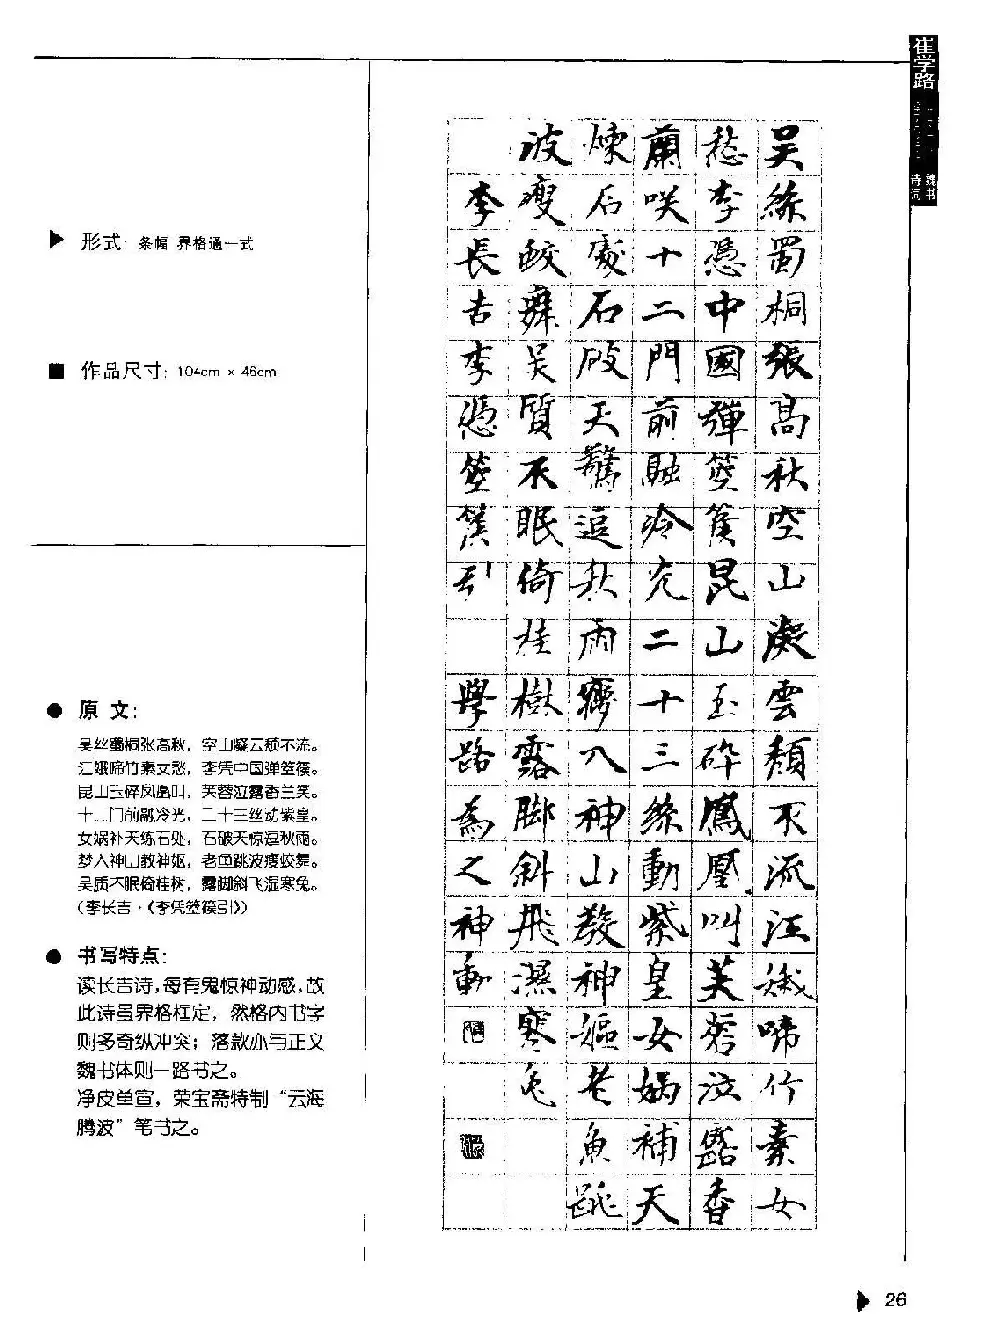 崔学路
魏书
诗词
▶ 形式 条幅 界格通一式
■ 作品尺寸: 104cm × 46cm
● 原文:
吴丝蜀桐张高秋，空山凝云颓不流。
江娥啼竹素女愁，李凭中国弹箜篌。
昆山玉碎凤凰叫，芙蓉泣露香兰笑。
十二门前融冷光，二十三丝动紫皇。
女娲补天炼石处，石破天惊逗秋雨。
梦入神山教神妪，老鱼跳波瘦蛟舞。
吴质不眠倚桂树，露脚斜飞湿寒兔。
(李长吉·《李凭箜篌引》)
● 书写特点:
读长吉诗，每有鬼惊神动感，故
此诗虽界格框定，然格内书字
则多奇纵冲突；落款亦与正文
魏书体则一路书之。
净皮单宣，荣宝斋特制“云海
腾波”笔书之。
吴絲蜀桐張高秋空山凝雲頹不流江娥啼竹素女
愁李憑中國彈箜篌昆山玉碎鳳凰叫芙蓉泣露香
蘭咲十二門前融冷光二十三絲動紫皇女媧補天
煉石處石破天驚逗秋雨夢入神山教神嫗老魚跳
波瘦蛟舞吴質不眠倚桂樹露脚斜飛濕寒兔
李長吉李憑箜篌引 學路為之神動
26